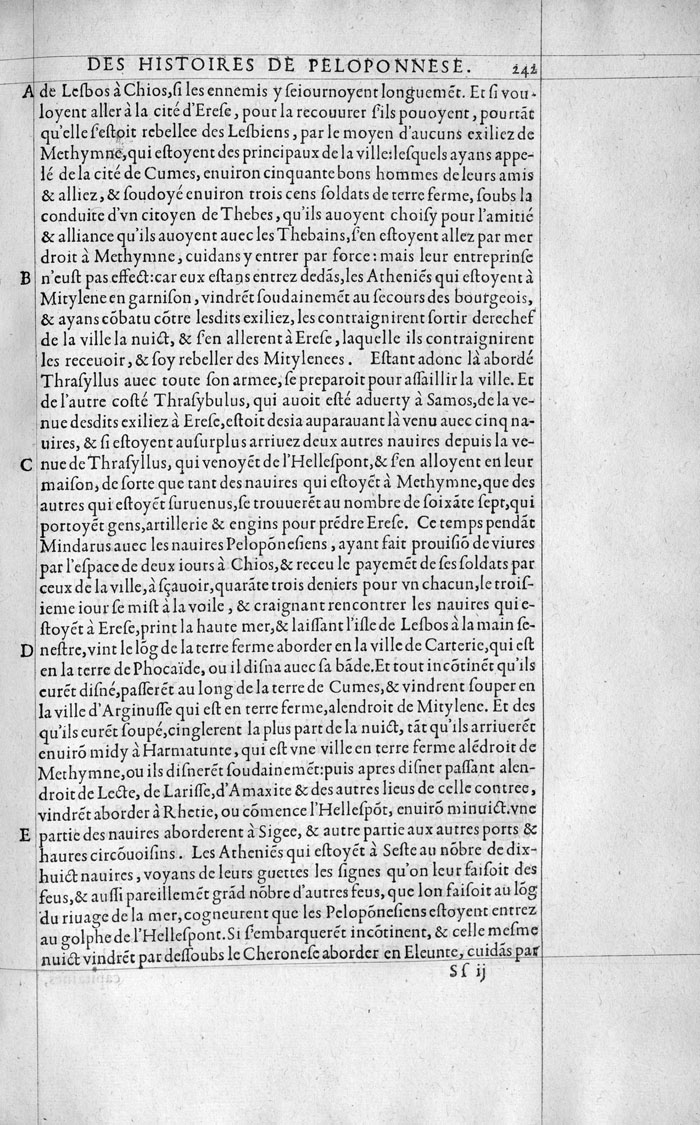 DES HISTOIRES DE PELOPONNESE. 242
A de Leſbos à Chios,ſi les ennemis y ſeiournoyent longuemẽt. Et ſi vou-
loyent aller à la cité d'Ereſe, pour la recouurer ſ'ils pouoyent, pourtãt
qu'elle ſ'eſtoit rebellee des Leſbiens, par le moyen d'aucuns exiliez de
Methymne,qui eſtoyent des principaux de la ville:leſquels ayans appe-
lé de la cité de Cumes, enuiron cinquante bons hommes de leurs amis
& alliez, & ſoudoyé enuiron trois cens ſoldats de terre ferme, ſoubs la
conduite d'vn citoyen de Thebes, qu'ils auoyent choiſy pour l'amitié
& alliance qu'ils auoyent auec les Thebains, ſ'en eſtoyent allez par mer
droit à Methymne, cuidans y entrer par force: mais leur entreprinſe
B n'euſt pas effect:car eux eſtans entrez dedãs,les Atheniẽs qui eſtoyent à
Mitylene en garniſon, vindrẽt ſoudainemẽt au ſecours des bourgeois,
& ayans cõbatu cõtre leſdits exiliez, les contraignirent ſortir derechef
de la ville la nuict, & ſ'en allerent à Ereſe, laquelle ils contraignirent
les receuoir, & ſoy rebeller des Mitylenees. Eſtant adonc là abordé
Thraſyllus auec toute ſon armee, ſe preparoit pour aſſaillir la ville. Et
de l'autre coſté Thraſybulus, qui auoit eſté aduerty à Samos,de la ve-
nue deſdits exiliez à Ereſe,eſtoit deſia auparauant là venu auec cinq na-
uires, & ſi eſtoyent auſurplus arriuez deux autres nauires depuis la ve-
C nue de Thraſyllus, qui venoyẽt de l'Helleſpont,& ſ'en alloyent en leur
maiſon, de ſorte que tant des nauires qui eſtoyẽt à Methymne,que des
autres qui eſtoyẽt ſuruenus,ſe trouuerẽt au nombre de ſoixãte ſept,qui
portoyẽt gens,artillerie & engins pour prẽdre Ereſe. Ce temps pendãt
Mindarus auec les nauires Pelopõneſiens, ayant fait prouiſiõ de viures
par l'eſpace de deux iours à Chios,& receu le payemẽt de ſes ſoldats par
ceux de la ville,à ſçauoir,quarãte trois deniers pour vn chacun,le troiſ-
ieme iour ſe miſt à la voile, & craignant rencontrer les nauires qui e-
ſtoyẽt à Ereſe,print la haute mer,& laiſſant l'iſle de Leſbos à la main ſe-
D neſtre, vint le lõg de la terre ferme aborder en la ville de Carterie,qui eſt
en la terre de Phocaïde, ou il diſna auec ſa bãde.Et tout incõtinẽt qu'ils
eurẽt diſné,paſſerẽt au long de la terre de Cumes,& vindrent ſouper en
la ville d'Arginuſſe qui eſt en terre ferme,alendroit de Mitylene. Et des
qu'ils eurẽt ſoupé,cinglerent la plus part de la nuict, tãt qu'ils arriuerẽt
enuirõ midy à Harmatunte, qui eſt vne ville en terre ferme alẽdroit de
Methymne,ou ils diſnerẽt ſoudainemẽt:puis apres diſner paſſant alen-
droit de Lecte, de Lariſſe,d'Amaxite & des autres lieus de celle contree,
vindrẽt aborder à Rhetie, ou cõmence l'Helleſpõt, enuirõ minuict.vne
E partie des nauires aborderent à Sigee, & autre partie aux autres ports &
haures circõuoiſins. Les Atheniẽs qui eſtoyẽt à Seſte au nõbre de dix-
huict nauires, voyans de leurs guettes les ſignes qu'on leur faiſoit des
feus,& auſſi pareillemẽt grãd nõbre d'autres feus, que lon faiſoit au lõg
du riuage de la mer,cogneurent que les Pelopõneſiens eſtoyent entrez
au golphe de l'Helleſpont.Si ſ'embarquerẽt incõtinent, & celle meſme
nuict vindrẽt par deſſoubs le Cheroneſe aborder en Eleunte, cuidãs par
Sſ ij